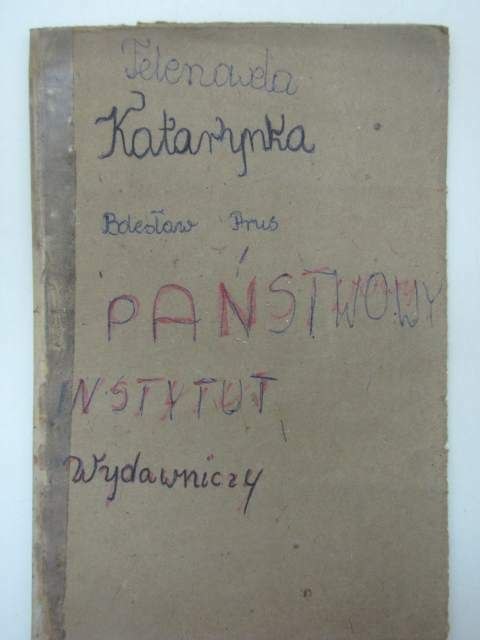 Katarynka
Bolesław Prus
PAŃSTWOWY
INSTYTUT
Wydawniczy